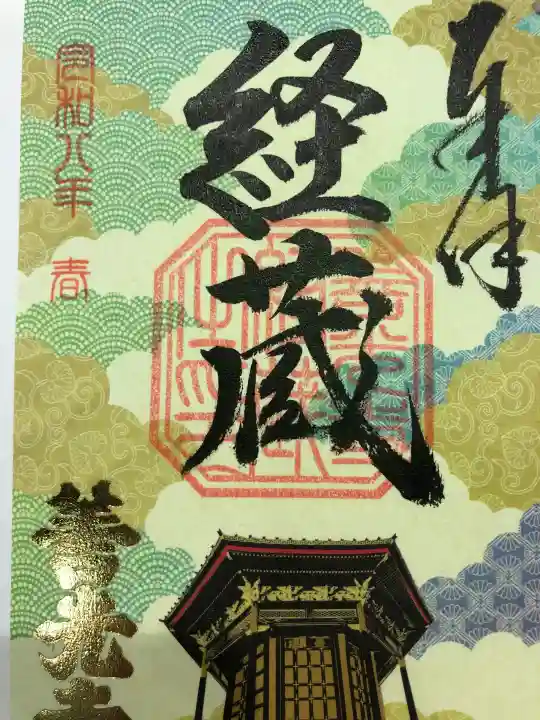 奉拝
経蔵
令和八年 春
善光寺